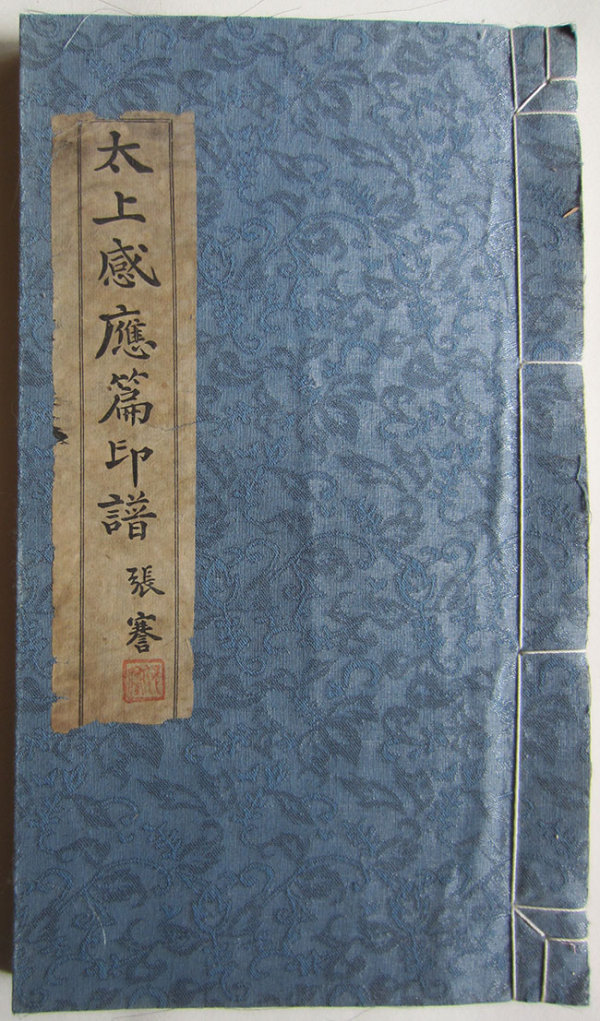 太上感應篇印譜
張謇